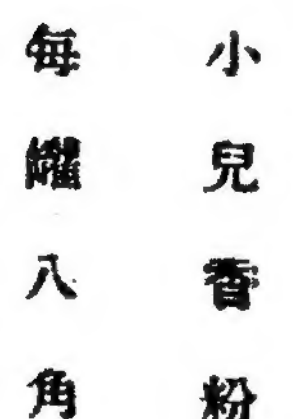 小兒香粉
每罐八角